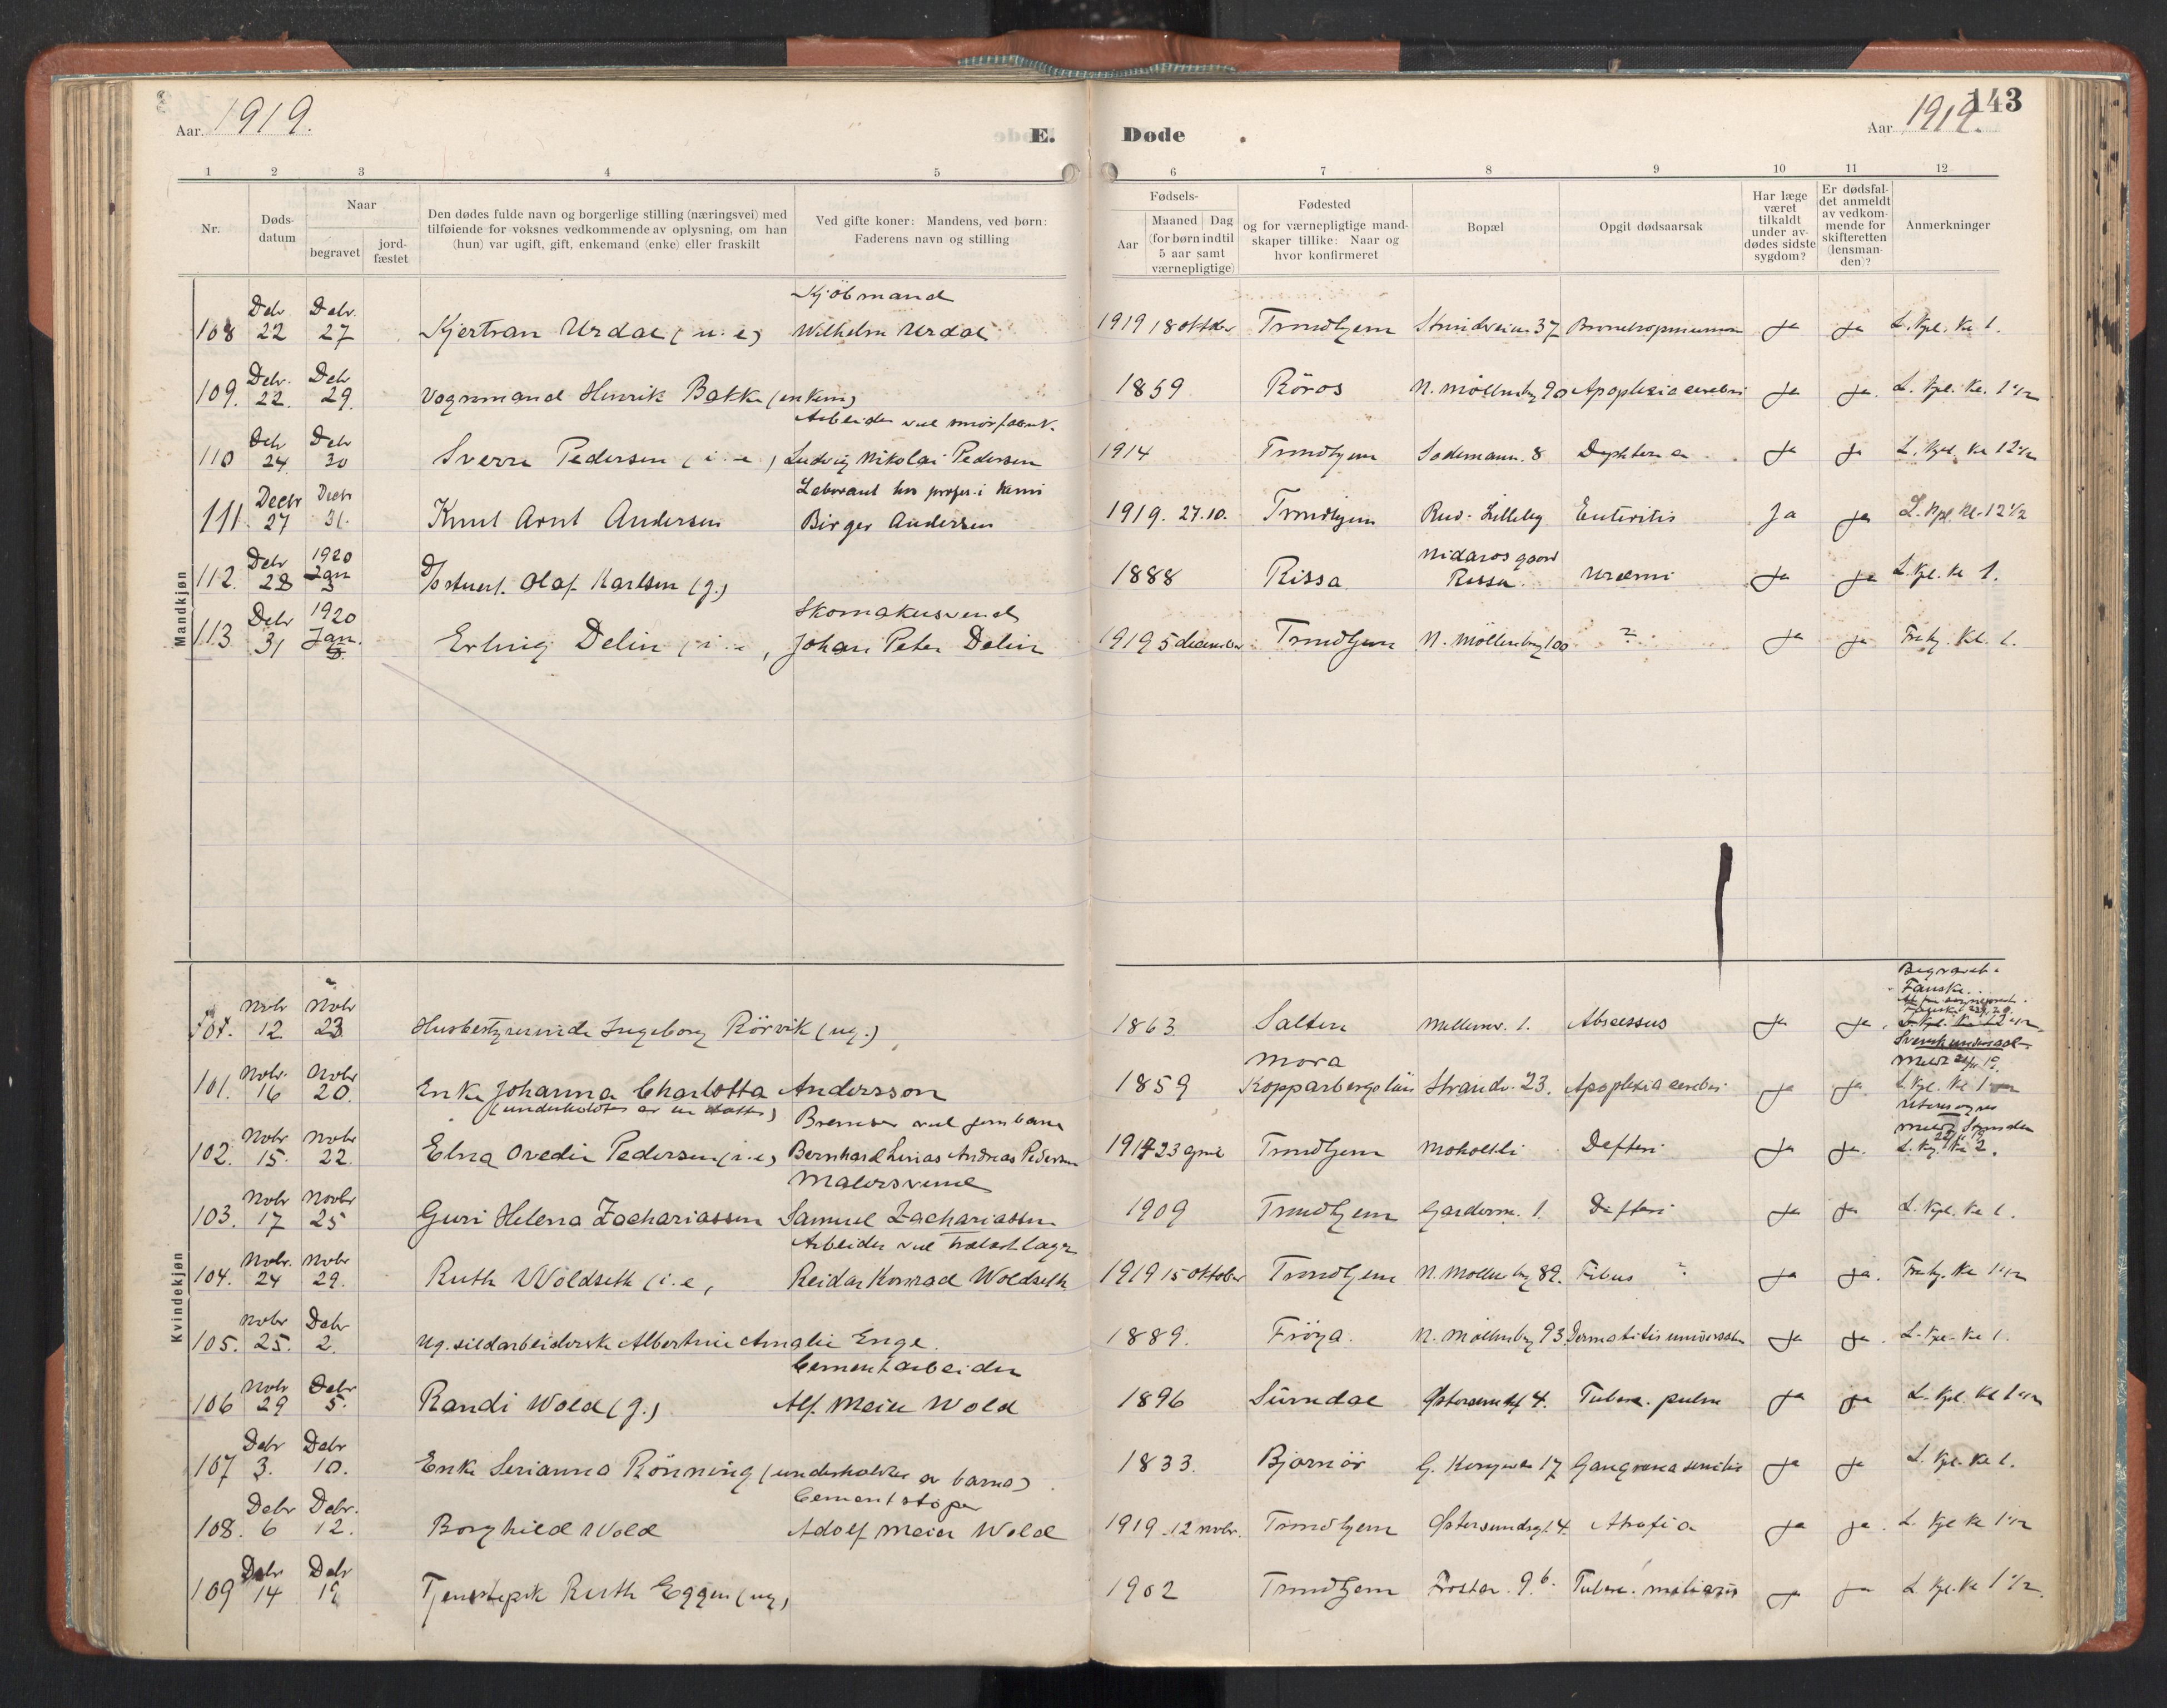 Aar 1919.
E.
Døde
Aar 1919.
143
1 2 3 4 5 6 7 8 9 10 11 12
Nr.
Døds-
datum
Naar
begravet
jord-
fæstet
Den dødes fulde navn og borgerlige stilling (næringsvei) med
tilføiende for voksnes vedkommende av oplysning, om han
(hun) var ugift, gift, enkemand (enke) eller fraskilt
Ved gifte koner: Mandens, ved børn:
Faderens navn og stilling
Fødsels-
Aar
Maaned Dag
(for børn indtil
5 aar samt
værnepligtige)
Fødested
og for værnepligtige mand-
skaper tillike: Naar og
hvor konfirmeret
Bopæl
Opgit dødsaarsak
Har læge
været
tilkaldt
under av-
dødes sidste
sygdom?
Er dødsfal-
det anmeldt
av vedkom-
mende for
skifteretten
(lensman-
den)?
Anmerkninger
Mandkjøn
Debr Debr. Kjöbmand
108 22 27 Kjertran Urdal (u.e) Wilhelm Urdal 1919 18 oktober Trondhjem Strindveien 37 Ja Ja L. Kpl. Kl 1.
Debr. Debr
109. 22. 29. Vognmand Henrik Bakke (enkem) 1859 Röros N. Möllenbg 90 Apoplexia cerebri Ja Ja. L. Kpl. Kl. 1 1/2
Debr Debr Arbeider ved
110 24 30 Sverre Pedersen (i.e.) Ludvig Nikolai Pedersen 1914 Trondhjem Sodemann. 8 Ja Ja L. Kpl. Kl 12 1/2
Decbr Decbr Laborant hos profes. i kemi
111. 27 31. Knut Arnt Andersen Birger Andersen 1919. 27.10. Trondhjem Rud. Lilleby Enteritis Ja Ja L. Kpl. Kl. 12 1/2
Debr 1920 Jan Nidaros gaard
112. 28 3 Olaf Karlsen (g.) 1888 Rissa Rissa. Uræmi Ja Ja L. Kpl. Kl 1.
Debr 1920 Jan. Skomakersvend
113 31 Erling Delin (i.e, Johan Peter Delin 1919 5 december Trondhjem N. Möllenbg 100 ? Ja Ja Kl. 1.
Kvindekjøn
Begravet i
Fauske.
Nobr Nobr
12 23 Husbestyrerinde Ingeborg Rörvik (ug.) 1863 Salten 1. Abscessus Ja Ja.
Nobr. Nobr Mora
101. 16 20. Enke Johanna Charlotta Andersson 1859 Kopparbergs län Strandv. 23. Apoplexia cerebri Ja Ja. L. Kpl. Kl 1
(underholdtes av en datter) Bremser ved jernbanen
Nobr Nobr
102. 15. 22. Elna Ovedie Pedersen (i.e) Bernhard Linias Andreas Pedersen 23 april Trondhjem Moholtli Defteri Ja Ja.
Nobr Novbr Malersvend
103. 17 25 Guri Helena Zachariassen Samuel Zachariassen 1909 Trondhjem Garderm. 1. Defteri Ja Ja L. Kpl. Kl 1.
Nobr. Nobr Arbeider ved trælastlager
104. 24 29. Ruth Woldseth (i.e, Reidar Konrad Woldseth 1919 15 oktober Trondhjem N. Möllenbg 89. ? Ja Ja. Kl 1 1/2
Nobr Debr
105. 25. 2. Ug. sildarbeiderske Albertine Amalie Enge. 1889. Fröya. N. Möllenbg 93. Dermatitis universalis Ja Ja. L. Kpl. Kl 1.
Nobr Debr Cementarbeider
106 29 5. Randi Wold (g.) Alf Meier Wold 1896 Surndal Østersundsgt 4. Tuberc. pulm Ja Ja L. Kpl. Kl 1 1/2
Debr Debr
107 3. 10. Enke Serianna Rönning (underholdes av barna) 1833. Bjørnör G. Kongevei 17 Gangræna senilis Ja Ja L. Kpl. Kl 1.
Debr Debr. Cementstöper
108. 6 12. Borghild Wold Adolf Meier Wold 1919. 12 nobr. Trondhjem Østersundsgt. 4. Atrofia Ja Ja. L. Kpl Kl 1 1/2
Debr Debr
109 14 19 Tjenstepik Ruth Eggen (ug) 1902 Trondhjem Frostav. 9 b. Tuberc. miliaris Ja Ja L. Kpl. Kl 1 1/2.